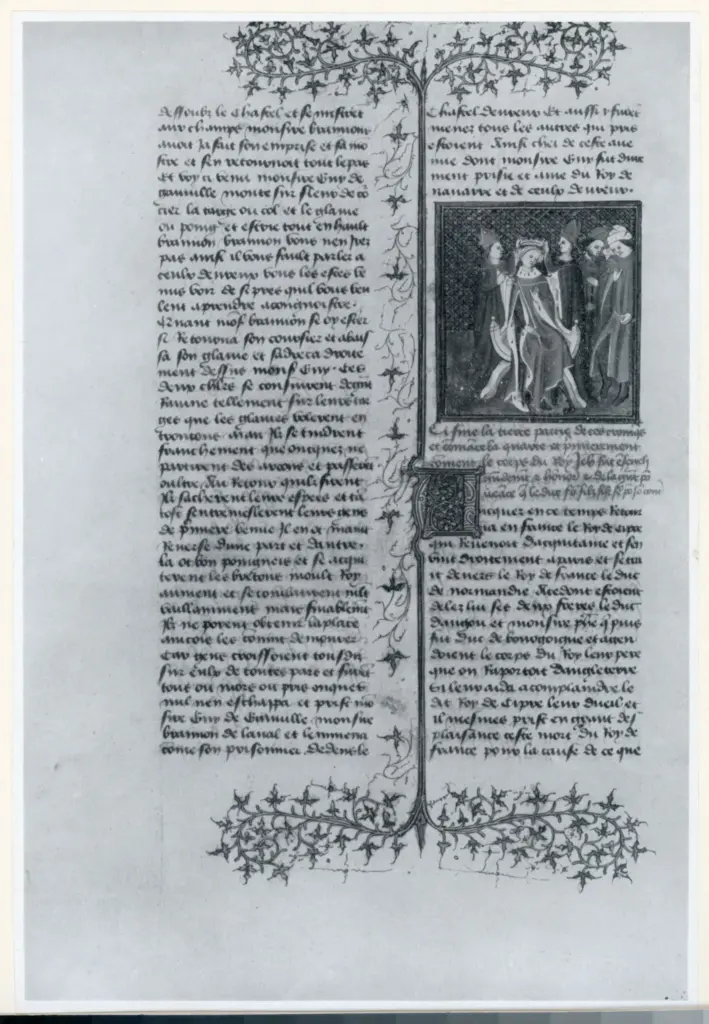 dessoubz le chastel et se misrent
aux champs monsire braimons
auoit Ja fait son emprise et sa mo
stre et sen retournoit tout le pas
Et voy ci venir monsire Guy de
Gauuille monte sur fleur de co
rier la targe ou col et le glaiue
ou poing et escrie tout en hault
braimon braimon vous nen Irez
pas ainsi il vous fault parler a
ceulx deureux vous les estes ve
nus voir de si pres quil vous veu
lent aprendre a congnoistre.
Quant mons braimon se oy escrier
si Retourna son coursier et abaissa
sa son glaiue et sadreca droite
ment dessus mons Guy. Ces
deux chlrs se consuirent de grant
Raune tellement sur leurs tar
ges que les glaiues volerent en
troncons mais Ilz se tindrent
franchement que oncques ne
partirent des arcons et passerent
oultre. Au Retour quilz firent
Ilz sacherent leurs espees et ta
tost sentremeslerent leurs gens
de premiere venue Il en ot maint
Reuerse dune part et dautre.
la ot bon pongneis et se acqui
terent les bretons moult loy
aument et se combatirent mlt
vaillamment mais finablemt
Ilz ne porent obtenir la place
aincois les conuint demourer
Car gens croissoient tousdis
sur eulx de toutes pars et furent
tous ou mors ou pris onques
nul nen eschappa et prist mo
sire Guy de Gauuille monsire
braimon de laual et lenmena
come son prisonnier dedens le
Chastel deureux Et aussi y furent
menez tous les autres qui pris
estoient Ainsi chei de ceste aue
nue dont monsire Guy fut dure
ment prisie et ame du Roy de
nauarre et de ceulx deureux.
Ci fine la tierce partie de ces croniqs
et comance la quarte et premierement
coment le corps du Roy Jeh fut
a honor
Jcques en ce temps Retour
na en france le Roy de cipre
qui Reuenoit daquitaine et sen
vint droitement a paris et se trai
it deuers le Roy de france le duc
de normandie. Adont estoient
delez lui ses deux freres le duc
daniou et monsire phe q puis
fut duc de bourgoigne et aten
doient le corps du Roy leur pere
que on Raportoit dangleterre
Si leur aida a complaindre le
dit Roy de cipre leur dueil et
il mesmes prist en grant des
plaisance ceste mort du Roy de
france pour la cause de ce que